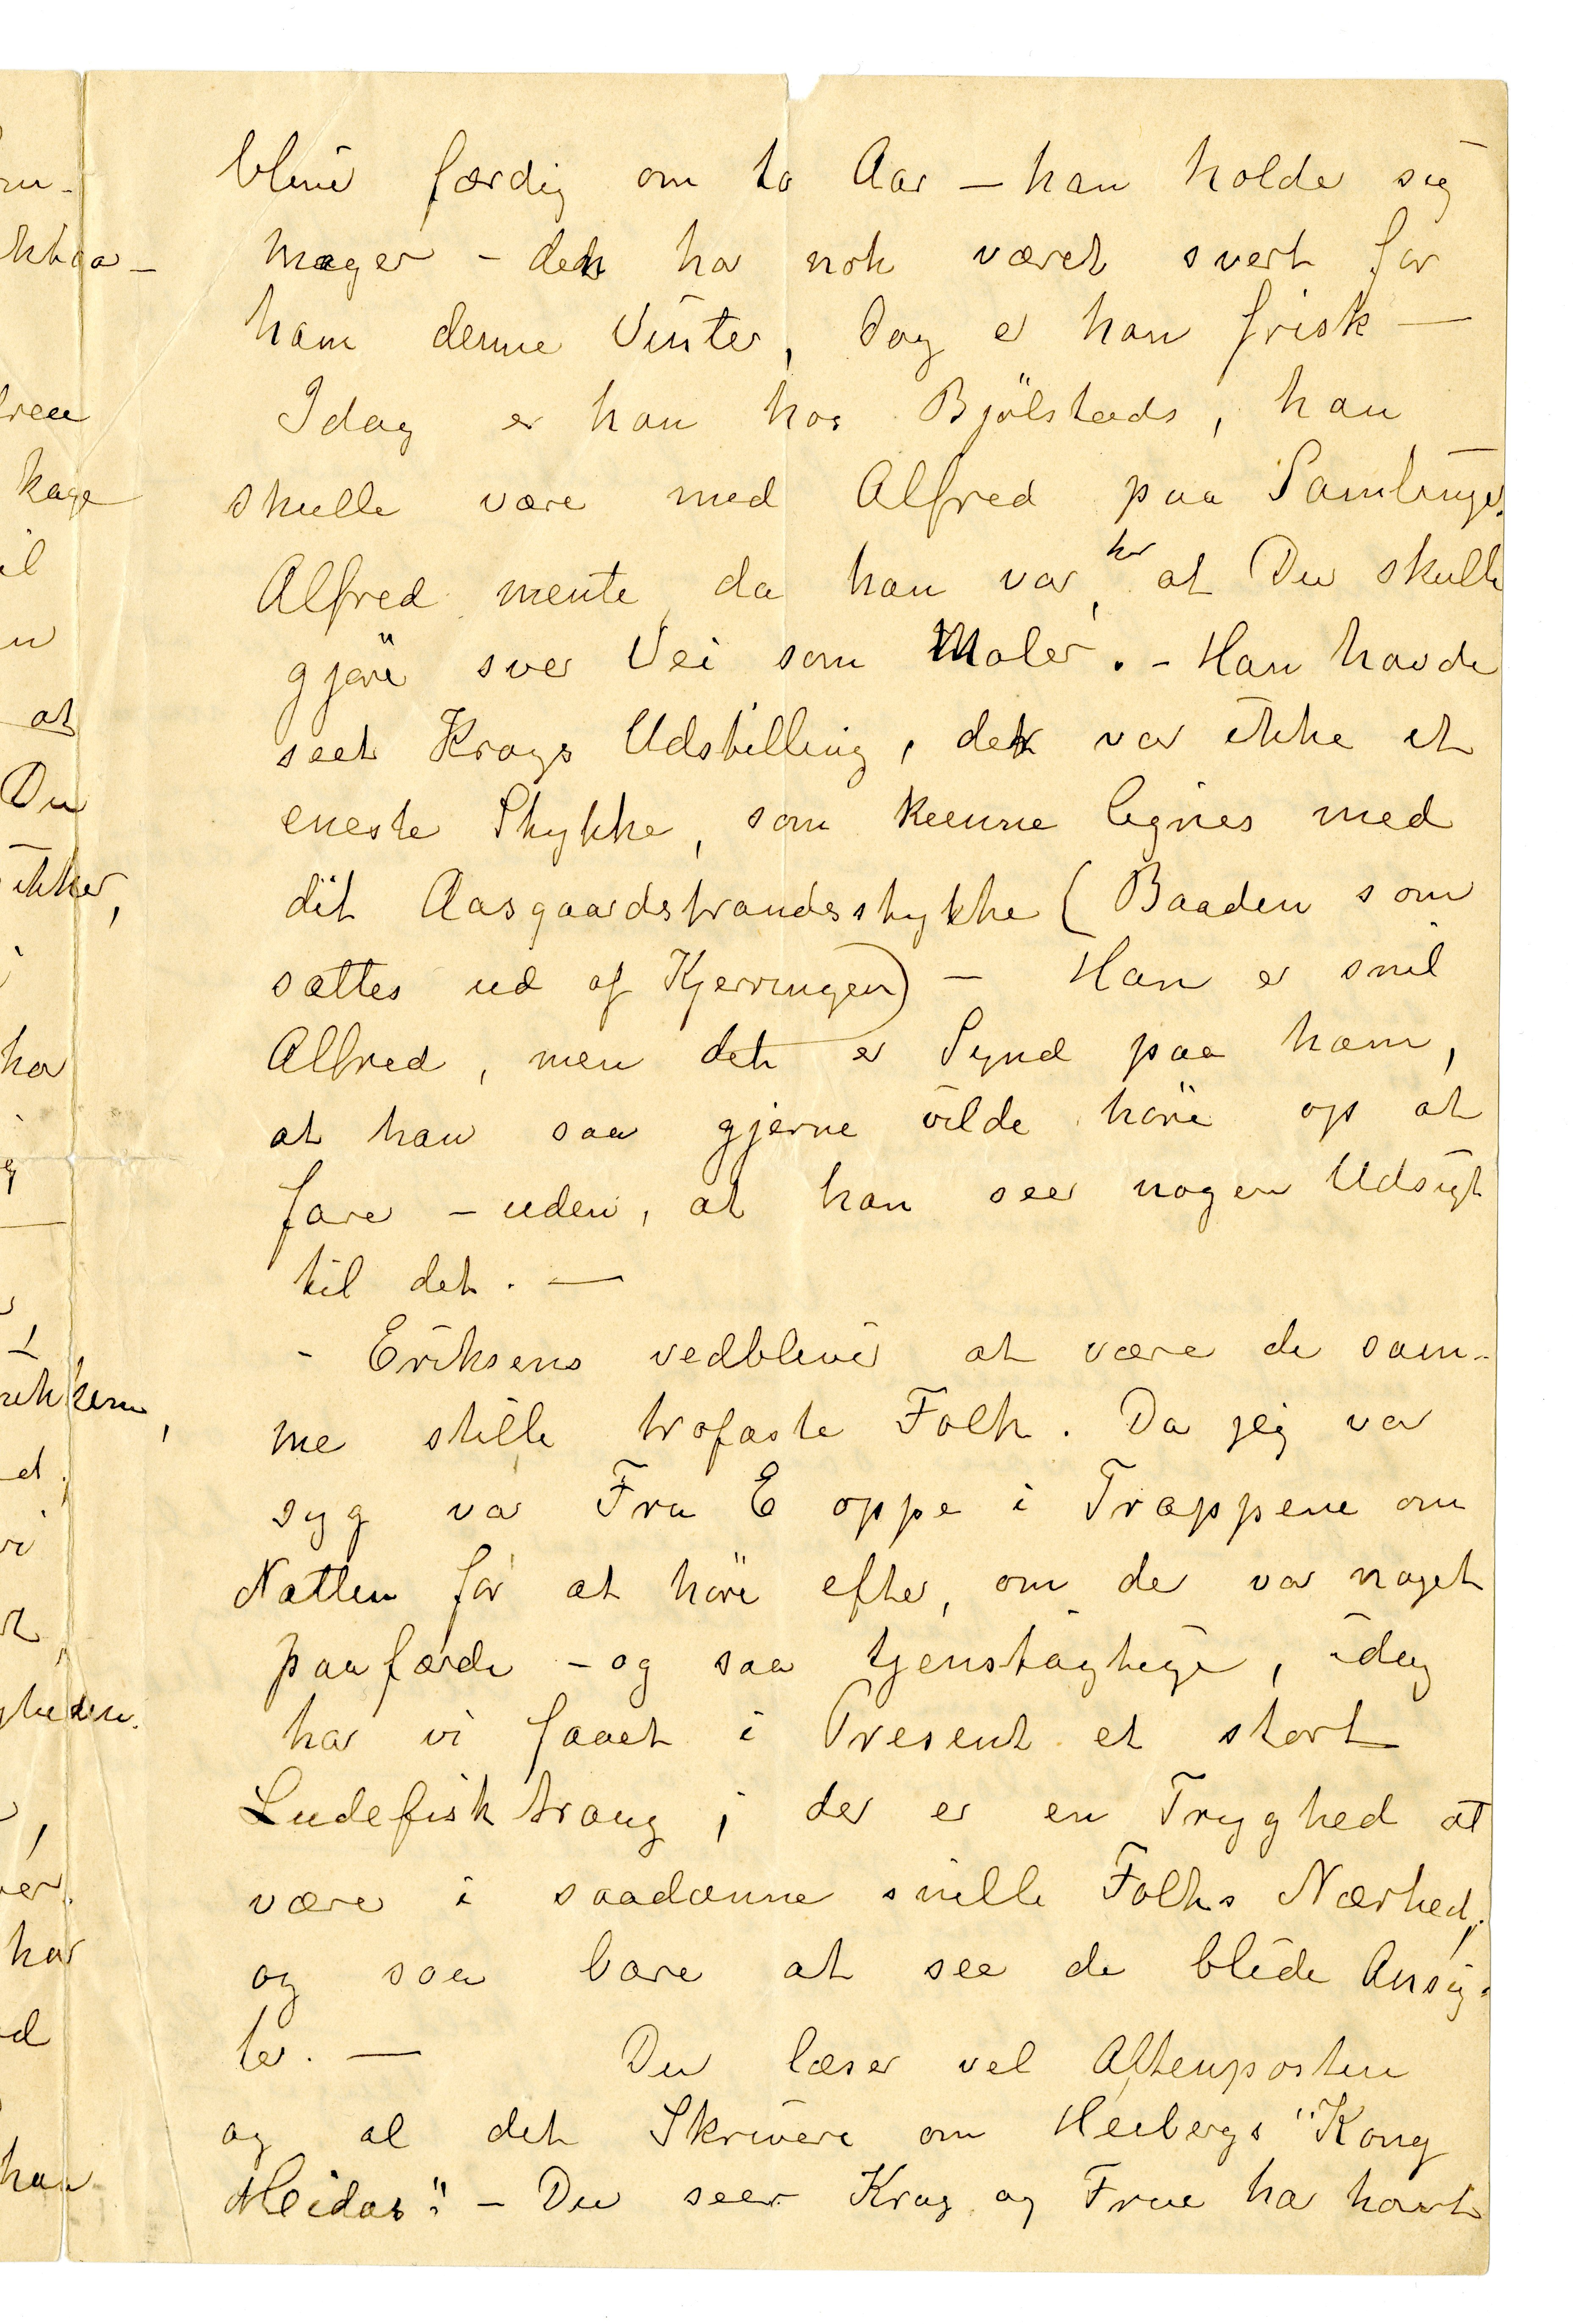 blive færdig om to Aar – han holder sig
mager – det har nok været svert for
ham denne Vinter, dog er han frisk –
Idag er han hos Bjölstads, han
skulle være med Alfred paa Samlinger.
Alfred mente da han var her, at Du skulle
gjöre svær Vei som Maler. – Han havde
seet Krogs Udstilling, det var ikke et
eneste Stykke, som kunne lignes med
dit Aasgaardstrandsstykke (Baaden som
sættes ud af Kjerringen) – Han er snil
Alfred, men det er Synd paa ham,
at han saa gjerne vilde höre op at
fare – uden, at han seer nogen Udsigt
til det. –
– Eriksens vedbliver at være de sam-
me stille trofaste Folk. Da jeg var
syg var Fru E oppe i Trappene om
Natten for at höre efter, om der var noget
paafærde – og saa tjenstagtige, idag
har vi faaet i Present et stort
Ludefisktraug; der er en Tryghed at
være i saadanne snille Folks Nærhed,
og saa bare at see de blide Ansig-
ter. – Du læser vel Aftenposten
og al det Skriveri om Heibergs "Kong
Meidas". – Du seer Krog og Frue har havt